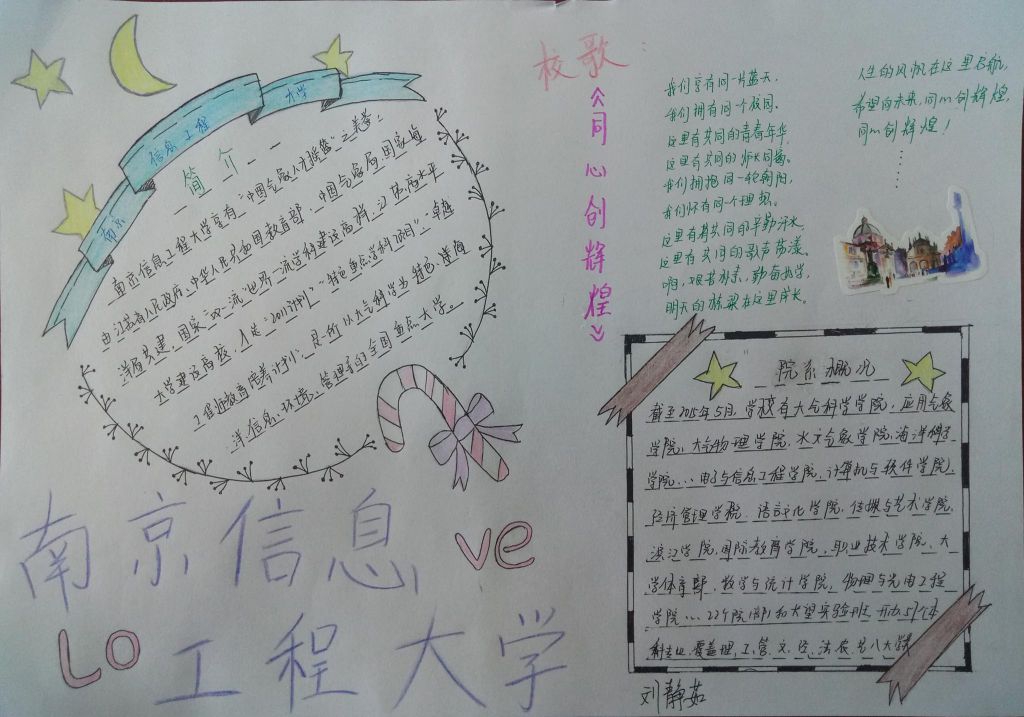 南京
信息工程
大学
简介
南京信息工程大学享有"中国气象人才摇篮"之美誉。
由江苏省人民政府、中华人民共和国教育部、中国气象局、国家海
洋局共建,国家"双一流"世界一流学科建设高校,江苏高水平
大学建设高校,入选"2011计划"、"特色重点学科项目"、卓越
工程师教育培养计划,是一所以大气科学为特色、涉海
洋、信息、环境、管理等的全国重点大学。
南京信息
工程大学
Lo
ve
校歌
《同心创辉煌》
我们享有同一片蓝天,
我们拥有同一个校园。
这里有共同的青春年华,
这里有共同的
我们拥抱同一轮朝阳,
我们怀有同一个理想。
这里有着共同的辛勤汗水,
这里有共同的歌声荡漾。
啊,艰苦朴素,勤奋好学,
明天的栋梁在这里成长。
人生的风帆在这里启航,
希望向未来,同心创辉煌,
同心创辉煌!
院系概况
截至2015年5月,学校有大气科学学院、应用气象
学院、大气物理学院、水文气象学院、海洋科学
学院…电子与信息工程学院、计算机与软件学院、
经济管理学院、语言文化学院、传媒与艺术学院、
滨江学院、国际教育学院、职业技术学院、大
学体育部、数学与统计学院、物理与光电工程
学院…22个院(部)和大望实验班,开办57个本
科专业,覆盖理、工、管、文、经、法、农、艺八大学科
刘静茹